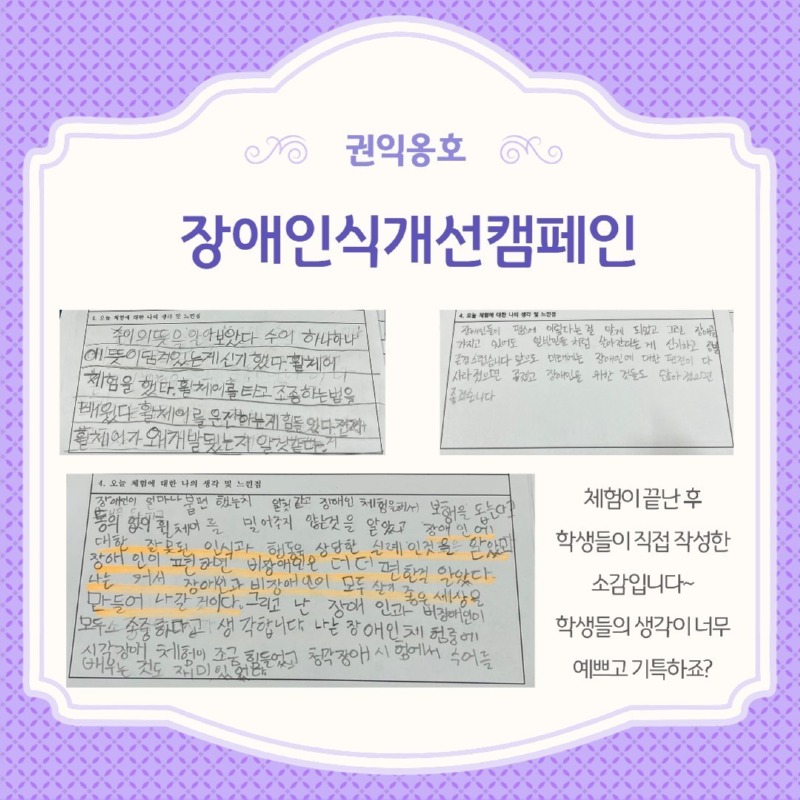 권익옹호
장애인식개선캠페인
4. 오늘 체험에 대한 나의 생각 및 느낀점
수어의 뜻을 알아보았다 수어 하나하나
에 뜻이 담겨있는게 신기했다. 휠체어
체험을 했다. 휠체어를 타고 조종하는법을
배웠다 휠체어를 운전하는게 힘들었다
휠체어가 왜 개발됬는지 알것같다.
4. 오늘 체험에 대한 나의 생각 및 느낀점
장애인들이 평소에 이렇다는 걸 알게 되었고 그런 장애를
가지고 있어도 일반인들처럼 살아간다는 게 신기하고 정말
존경스럽습니다 앞으로 장애인에 대한 편견이 다
사라졌으면 좋겠고 장애인을 위한 것들도 많아졌으면
좋겠습니다
4. 오늘 체험에 대한 나의 생각 및 느낀점
장애인이 얼마나 불편했는지 알것 같고 장애인 체험을해서
동의 없이 휠체어를 밀어주지 않는것을 알았고 장애인에
대한 잘못된 인식과 행동은 상당한 실례인것을 알았고
장애인이 편하면 비장애인은 더 더 편한걸 알았다
나는 커서 장애인과 비장애인이 모두 살기 좋은 세상을
만들어 나갈 것이다. 그리고 난 장애인과 비장애인이
모두 소중하다고 생각합니다 나는 장애인체험중에
시각장애 체험이 조금 힘들었고 청각장애 시험에서 수어를
배우는 것도 재미있었다
체험이 끝난 후
학생들이 직접 작성한
소감입니다~
학생들의 생각이 너무
예쁘고 기특하죠?